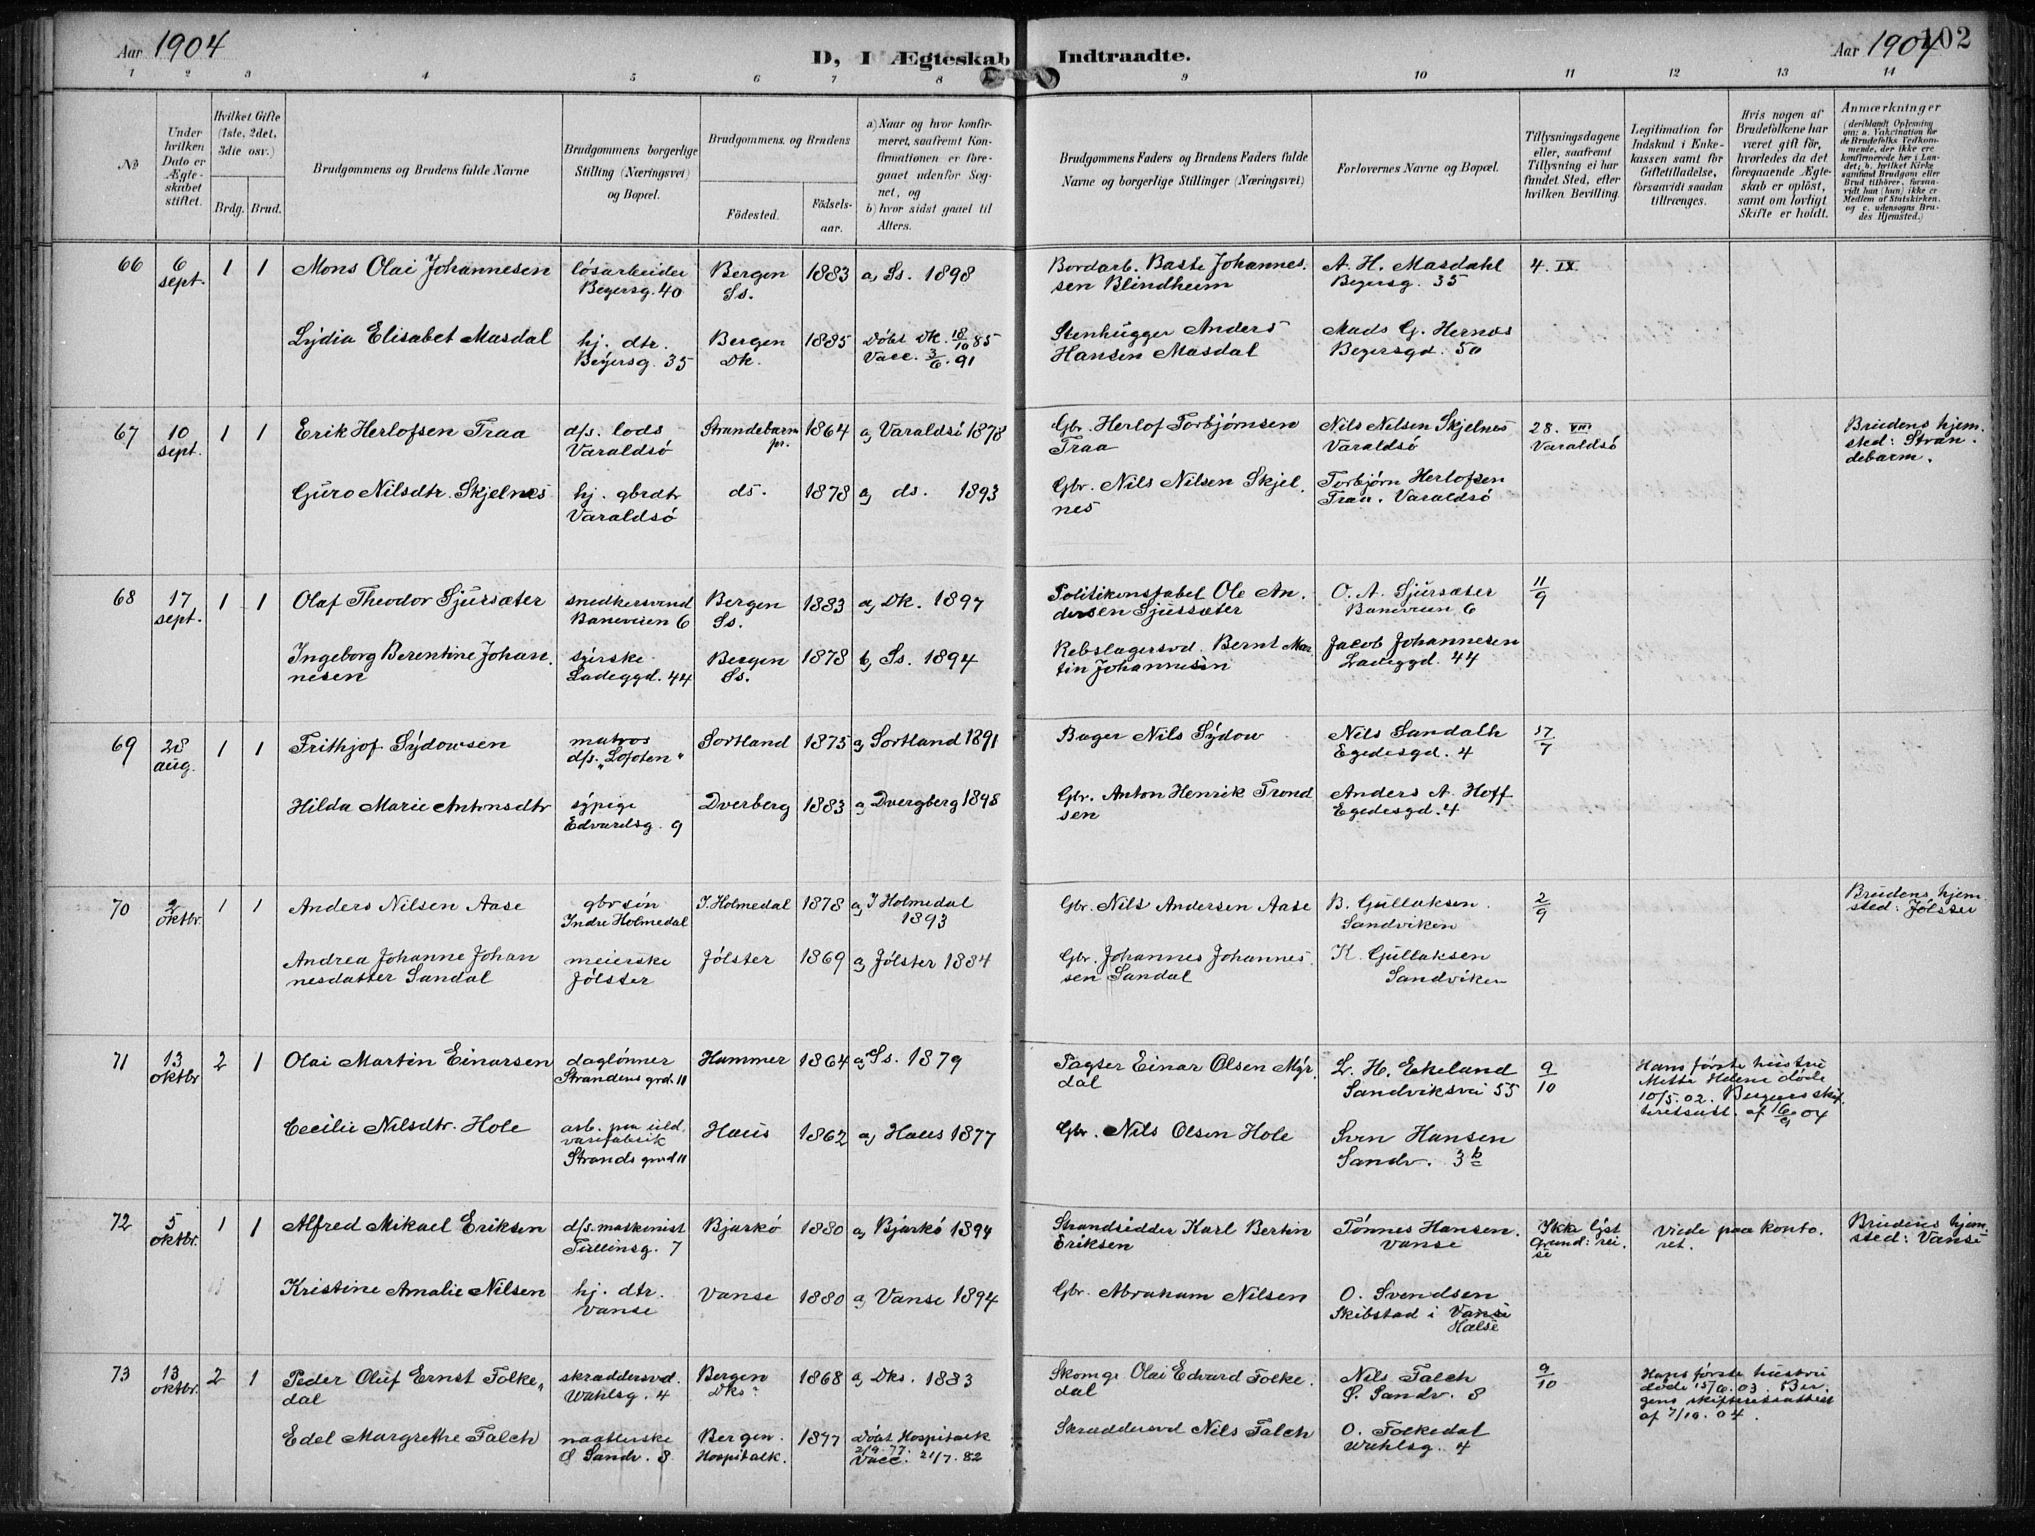 Aar 1904
D, I Ægteskab Indtraadte.
Aar 1904 102
1 2 3 4 5 6 7 8 9 10 11 12 13 14
No
Under hvilken Dato er Ægteskabet stiftet.
Hvilket Gifte (1ste, 2det, 3die osv.)
Brdg. Brud.
Brudgommens og Brudens fulde Navne
Brudgommens borgerlige Stilling (Næringsvei) og Bopæl.
Brudgommens og Brudens
Fødested.
Fødselsaar.
a) Naar og hvor konfirmeret, saafremt Konfirmationen er foregaaet udenfor Sognet, og
b) hvor sidst gaaet til Alters.
Brudgommens Faders og Brudens Faders fulde Navne og borgerlige Stillinger (Næringsvei)
Forlovernes Navne og Bopæl.
Tillysningsdagene eller, saafremt Tillysning ei har fundet Sted, efter hvilken Bevilling.
Legitimation for Indskud i Enkekassen samt for Giftetilladelse, forsaavidt saadan tiltrænges.
Hvis nogen af Brudefolkene har været gift før, hvorledes da det foregaaende Ægteskab er opløst, samt om lovligt Skifte er holdt.
Anmærkninger
(deriblandt Oplysning om: a. Vakcination for de Brudefolks Vedkommende, der ikke ere konfirmerede her i Landet; b. hvilket Kirkesamfund Brudgom eller Brud tilhører, forsaavidt han (hun) ikke er Medlem af Statskirken, og c. udensogns Brudes Hjemsted.)
66 6 sept. 1 1 Mons Olai Johannesen
løsarbeider Beyersg. 40
Bergen Ss. 1883 a, Ss. 1898
Bordarb. Baste Johannessen Blindheim
A. H. Masdahl Beyersg. 35
4. IX
Lydia Elisabet Masdal
hj. dtr. Beyersg. 35
Bergen Dk. 1885 Døbt Dk. 18/10 85 Vacc. 3/6. 91
Stenhugger Anders Hansen Masdal
Mads G. Hernes Beyersgd. 50
67 10 sept. 1 1 Erik Herlofsen Traa
d/s. lods Varaldsö
Strandebarm pr. 1864 a, Varaldsö 1878
Gbr. Herlof Torbjørnsen Traa
Nils Nilsen Skjelnes Varaldsö
28. VIII Varaldsö
Brudens hjemsted: Strandebarm.
Guro Nilsdtr. Skjelnes
hj. gbrdtr Varaldsö
ds. 1878 a, ds. 1893
Gbr. Nils Nilsen Skjelnes
Torbjørn Herlofsen Traa. Varaldsö
68 17 sept. 1 1 Olaf Theodor Sjursæter
snedkersvend Baneveien 6
Bergen Ss. 1883 a, Dk. 1897
Politikonstabel Ole Andersen Sjursæter
O. A. Sjursæter Baneveien 6
11/9
Ingeborg Berentine Johannesen
syerske Ladeggd. 44
Bergen Ss. 1878 b, Ss. 1894
Rebslagersvd. Bernt Martin Johannesen
Jacob Johannesen Ladeggd. 44
69 28 aug. 1 1 Frithjof Sydowsen
matros d/s. "Lofoten"
Sortland 1875 a, Sortland 1891
Bager Nils Sydow
Nils Sandalh Egedesgd. 4
17/7
Hilda Marie Antonsdtr
sypige Edvardsg. 9
Dverberg 1883 a, Dvergberg 1898
Gbr. Anton Henrik Trondsen
Anders A. Hoff Egedesgd. 4
70 2 oktbr. 1 1 Anders Nilsen Aase
gbrsøn Indre Holmedal
I. Holmedal 1878 a, I Holmedal 1893
Gbr. Nils Andersen Aase
B. Gullaksen. Sandviken
2/9
Brudens hjemsted: Jölster
Andrea Johanne Johannesdatter Sandal
meierske Jölster
Jölster 1869 a, Jölster 1884
Gbr. Johannes Johannessen Sandal
K. Gullaksen Sandviken
71 13 oktbr 2 1 Olai Martin Einarsen
daglönner Strandens grd. 11
Hammer 1864 a, Ss. 1879
Pagter Einar Olsen Myrdal
L. H. Ekeland Sandviksvei 55
9/10
Hans første hustru Mette Helene døde 10/5. 02. Bergens skifteretsatt. af 16/9 04
Cecilie Nilsdtr. Hole
arb. paa uldvarefabrik Strands grd 11
Haus 1862 a, Haus 1877
Gbr. Nils Olsen Hole
Sven Hansen Sandv. 3b
72 5 oktbr. 1 1 Alfred Mikael Eriksen
d/s. maskinist Tullinsg. 7
Bjarkö 1880 a, Bjarkö 1894
Strandsidder Karl Bertin Eriksen
Tönnes Hansen. Vanse
Ikke lyst Grund: reise
Viede paa kontoret.
Brudens hjemsted: Vanse
Kristine Amalie Nilsen
hj. dtr. Vanse
Vanse 1880 a, Vanse 1894
Gbr. Abraham Nilsen
O. Svendsen Skibstad i Vanse Halse
73 13 oktbr. 2 1 Peder Oluf Ernst Folkedal
skræddersvd. Wahlsg. 4
Bergen Dks. 1868 a, Dks. 1883
Skomgr Olai Edvard Folkedal
Nils Falch Ø. Sandv. 8
9/10
Hans første hustru døde 15/6. 03. Bergens skifteretsattest af 7/10. 04.
Edel Margrethe Falch
naatlerske Ø Sandv. 8
Bergen. Hospitalk. 1877 Døbt Hospitalk 2/9. 77. Vacc. 21/7. 82
Skræddersvd Nils Falch
O. Folkedal Wahlsg. 4